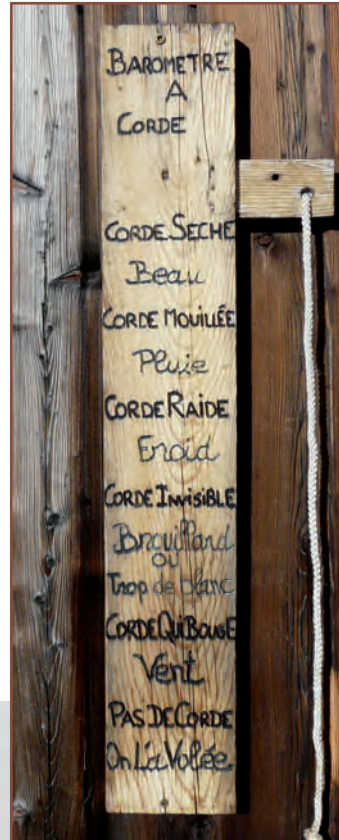 BAROMETRE
A
CORDE
CORDE SECHE
Beau
CORDE MOUILLÉE
Pluie
CORDE RAIDE
Froid
CORDE INVISIBLE
Brouillard
ou
Trop de blanc
CORDE QUI BOUGE
Vent
PAS DE CORDE
On L'a Volée